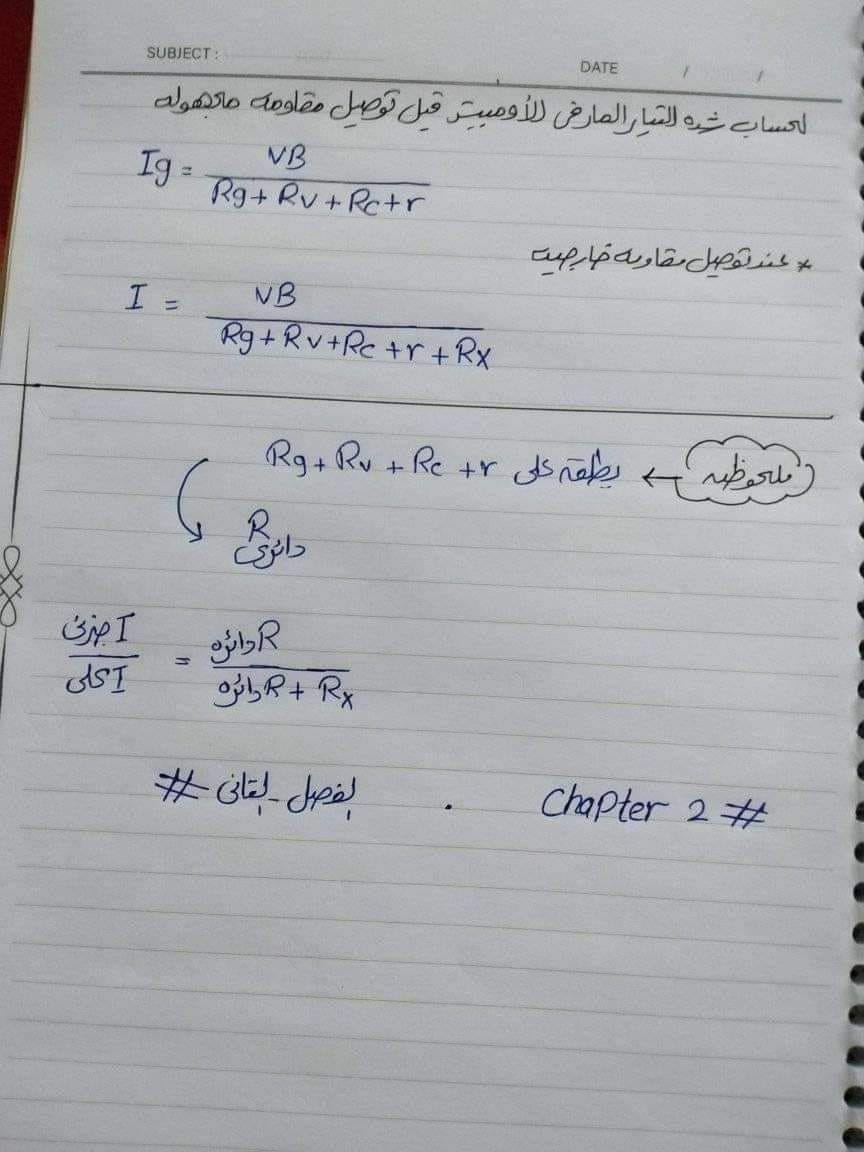 SUBJECT :
DATE / /
لحساب شده التيار المار في الأوميتر قبل توصيل مقاومه مجهوله
Ig = VB / Rg + Rv + Rc + r
* عند توصيل مقاومه خارجيه
I = VB / Rg + Rv + Rc + r + Rx
ملحوظه ← يطلق على Rg + Rv + Rc + r
R دائرى
I جزئى / I كلى = R دائره / R دائره + Rx
# الفصل الثانى . Chapter 2 #